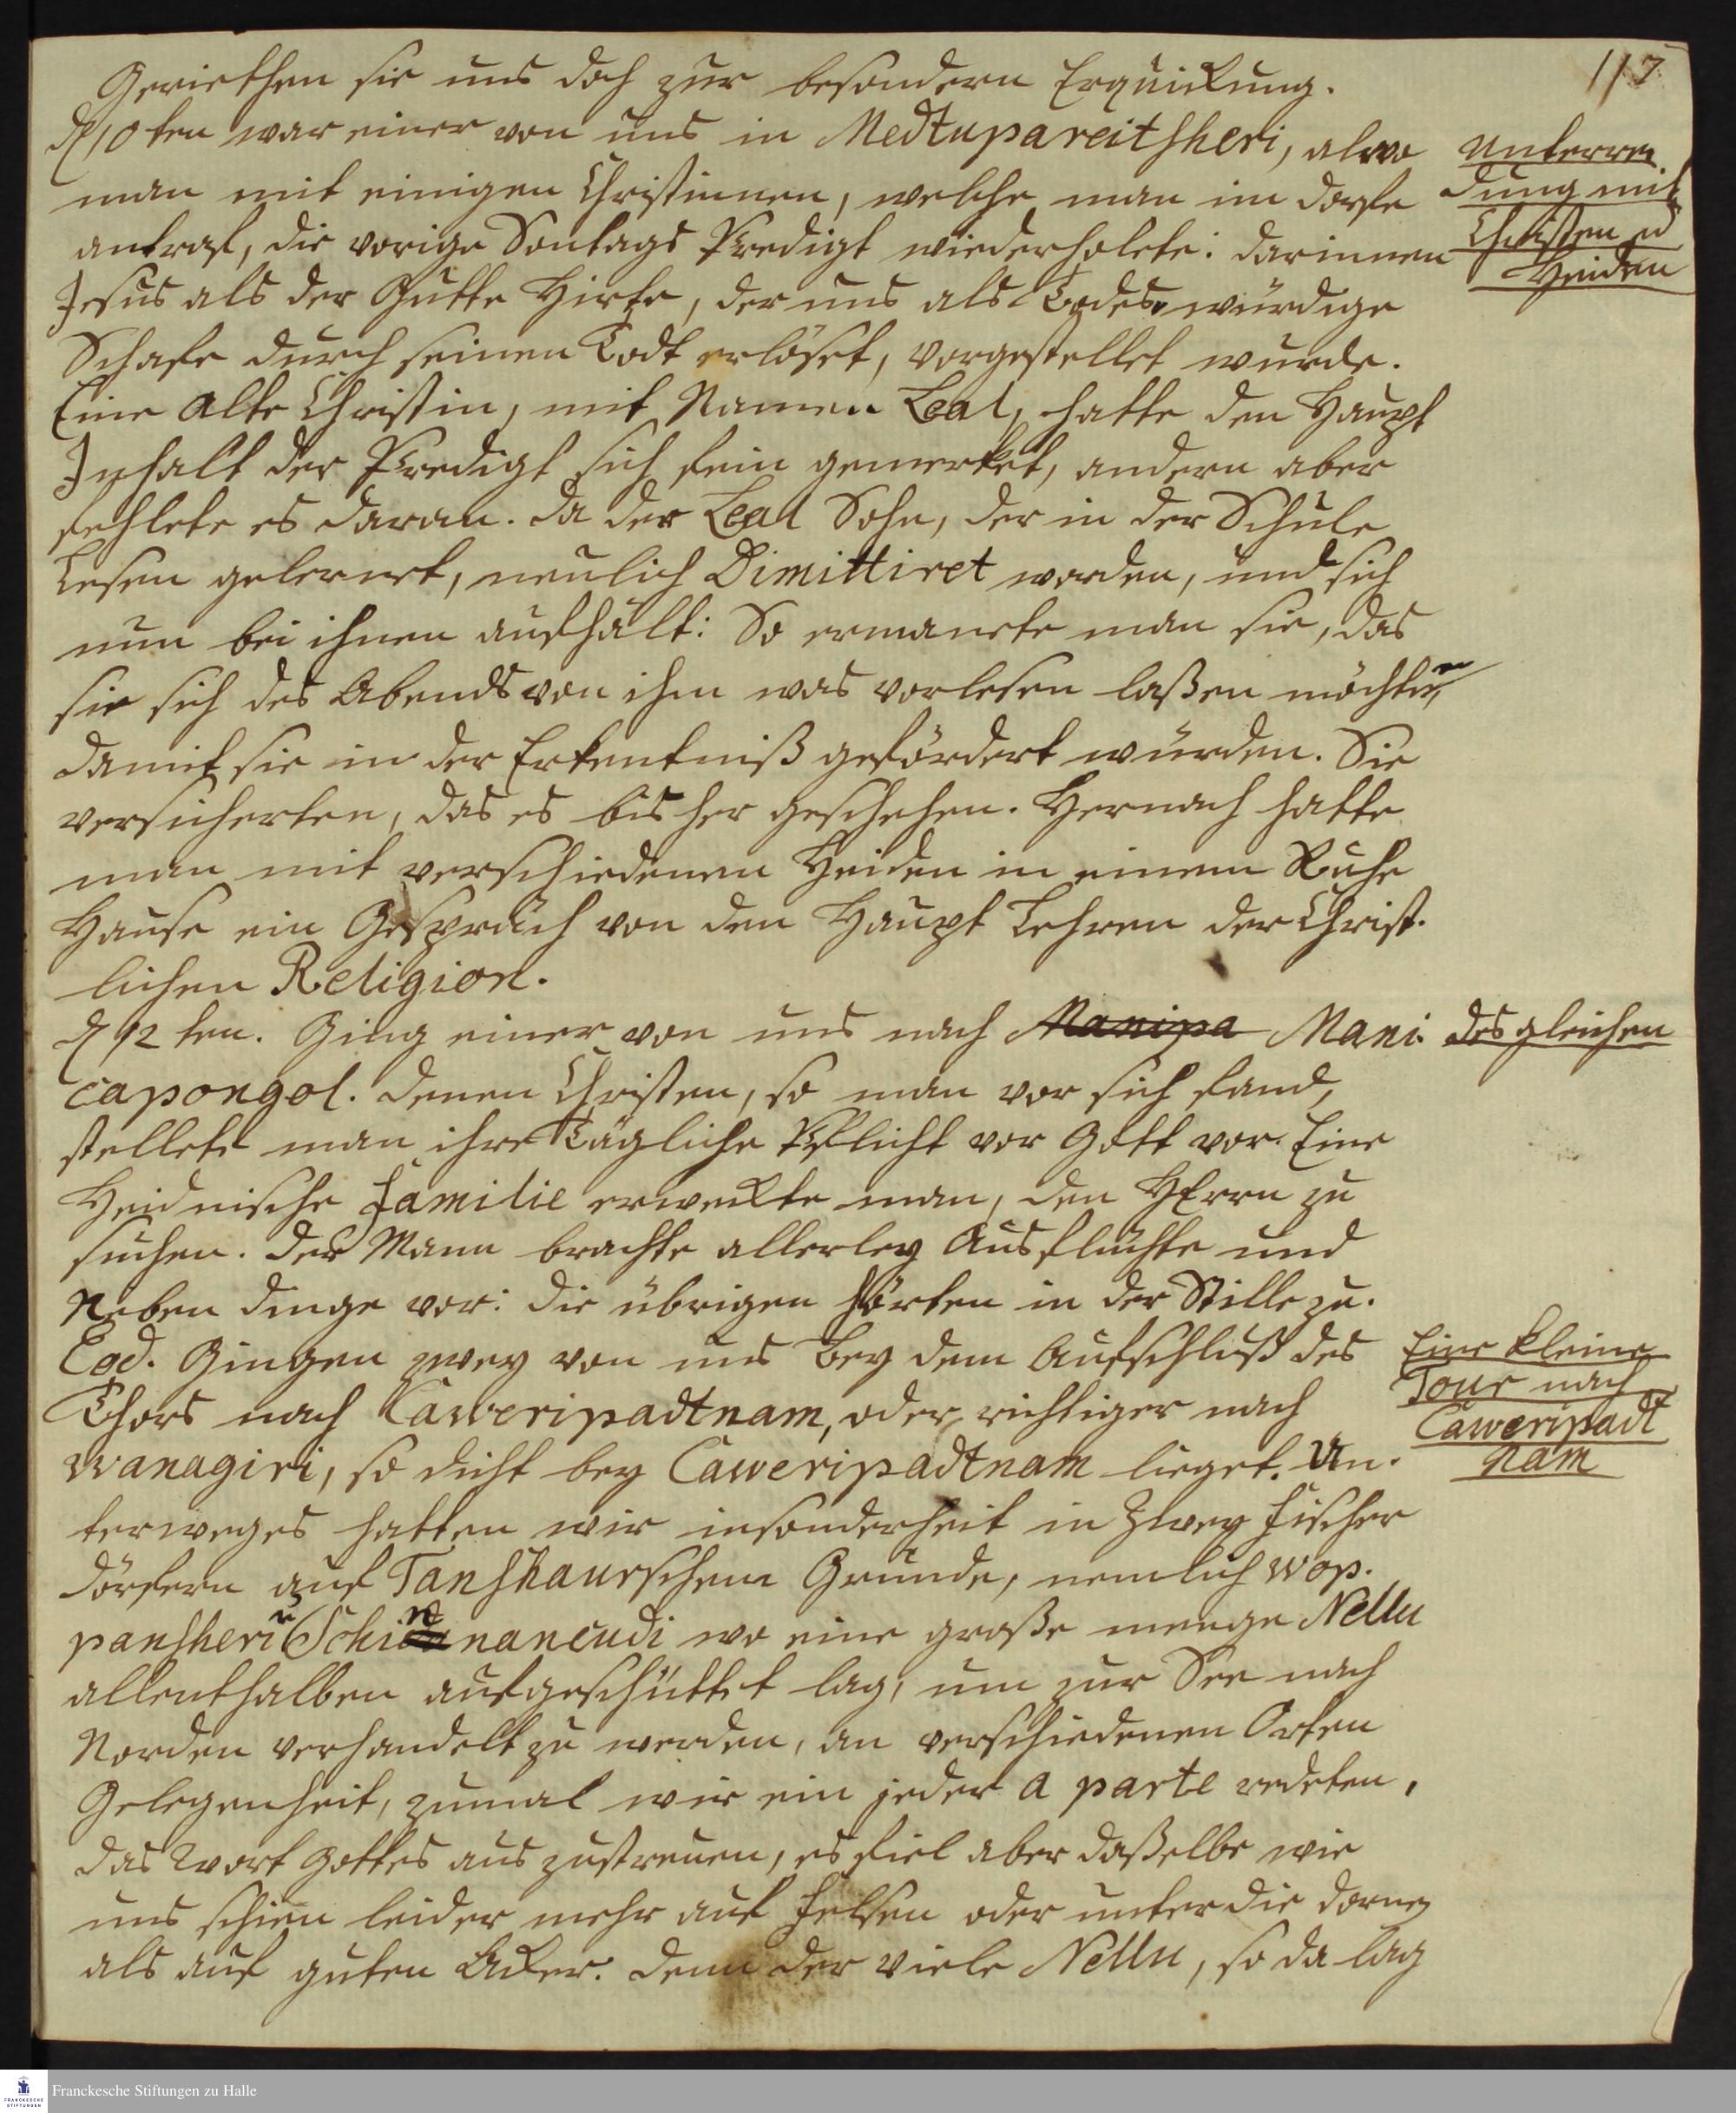 117
Geriethen sie uns doch zur besondern Erquickung.
d 10ten war einer von uns in Medtupareitsheri, alwo
man mit einigen Christinnen, welche man im dorfe
antraf, die vorige Sontags Predigt wiederholete: darinnen
Jesus als der Gutte Hirte, der uns als Todes würdige
Schafe durch seinen Todt erlöset, vorgestellet wurde.
Eine Alte Christin, mit Namen Leal, hatte den Haupt
Inhalt der Predigt sich fein gemerket, andern aber
fehlete es daran. Da der Leal Sohn, der in der Schule
Lesen gelernet, neulich Dimittiret worden, und sich
nun bei ihnen aufhält: So ermanete man sie, das
sie sich des Abends von ihm was vorlesen laßen möchten,
damit sie in der Erkentniß gefördert würden. Sie
versicherten, das es bisher geschehen. Hernach hatte
man mit verschiedenen Heiden in einem Ruhe
Hause ein Gespräch von den Haupt Lehren der Christ-
lichen Religion.
Unterre
dung mit
Christen u
Heiden
d 12 ten. Ging einer von uns nach Manipa Mani-
capongol. Denen Christen, so man vor sich fand,
stellete man ihre Tägliche Pflicht vor Gott vor. Eine
Heidnische Familie erweckte man, den HErrn zu
suchen. Der Mann brachte allerley Ausflüchte und
Neben dinge vor: die übrigen hörten in der Stille zu.
desgleichen
Eod. Gingen zwey von uns Bey dem Aufschluß des
Thors nach Caweripadtnam, oder richtiger nach
Wanagiri, so dicht bey Caweripadtnam lieget. Un-
terweges hatten wir insonderheit in Zwey Fischer
dörfern auf Tanshaurschem Grunde, nemlich Wop-
pansheri u Schinnancudi wo eine große menge Nellu
allenthalben aufgeschüttet lag, um zur See nach
Norden verhandelt zu werden, an verschiedenen Orten
Gelegenheit, zumal wir ein jeder a parte redeten,
das Wort Gottes auszustreuen, es fiel aber daßelbe wie
uns schien leider mehr auf Felsen oder unter die dornen
als auf guten Acker. Denn der viele Nellu, so da lag
Eine kleine
Tour nach
Caweripadt
nam
Franckesche Stiftungen zu Halle
FRANCKESCHE
STIFTUNGEN